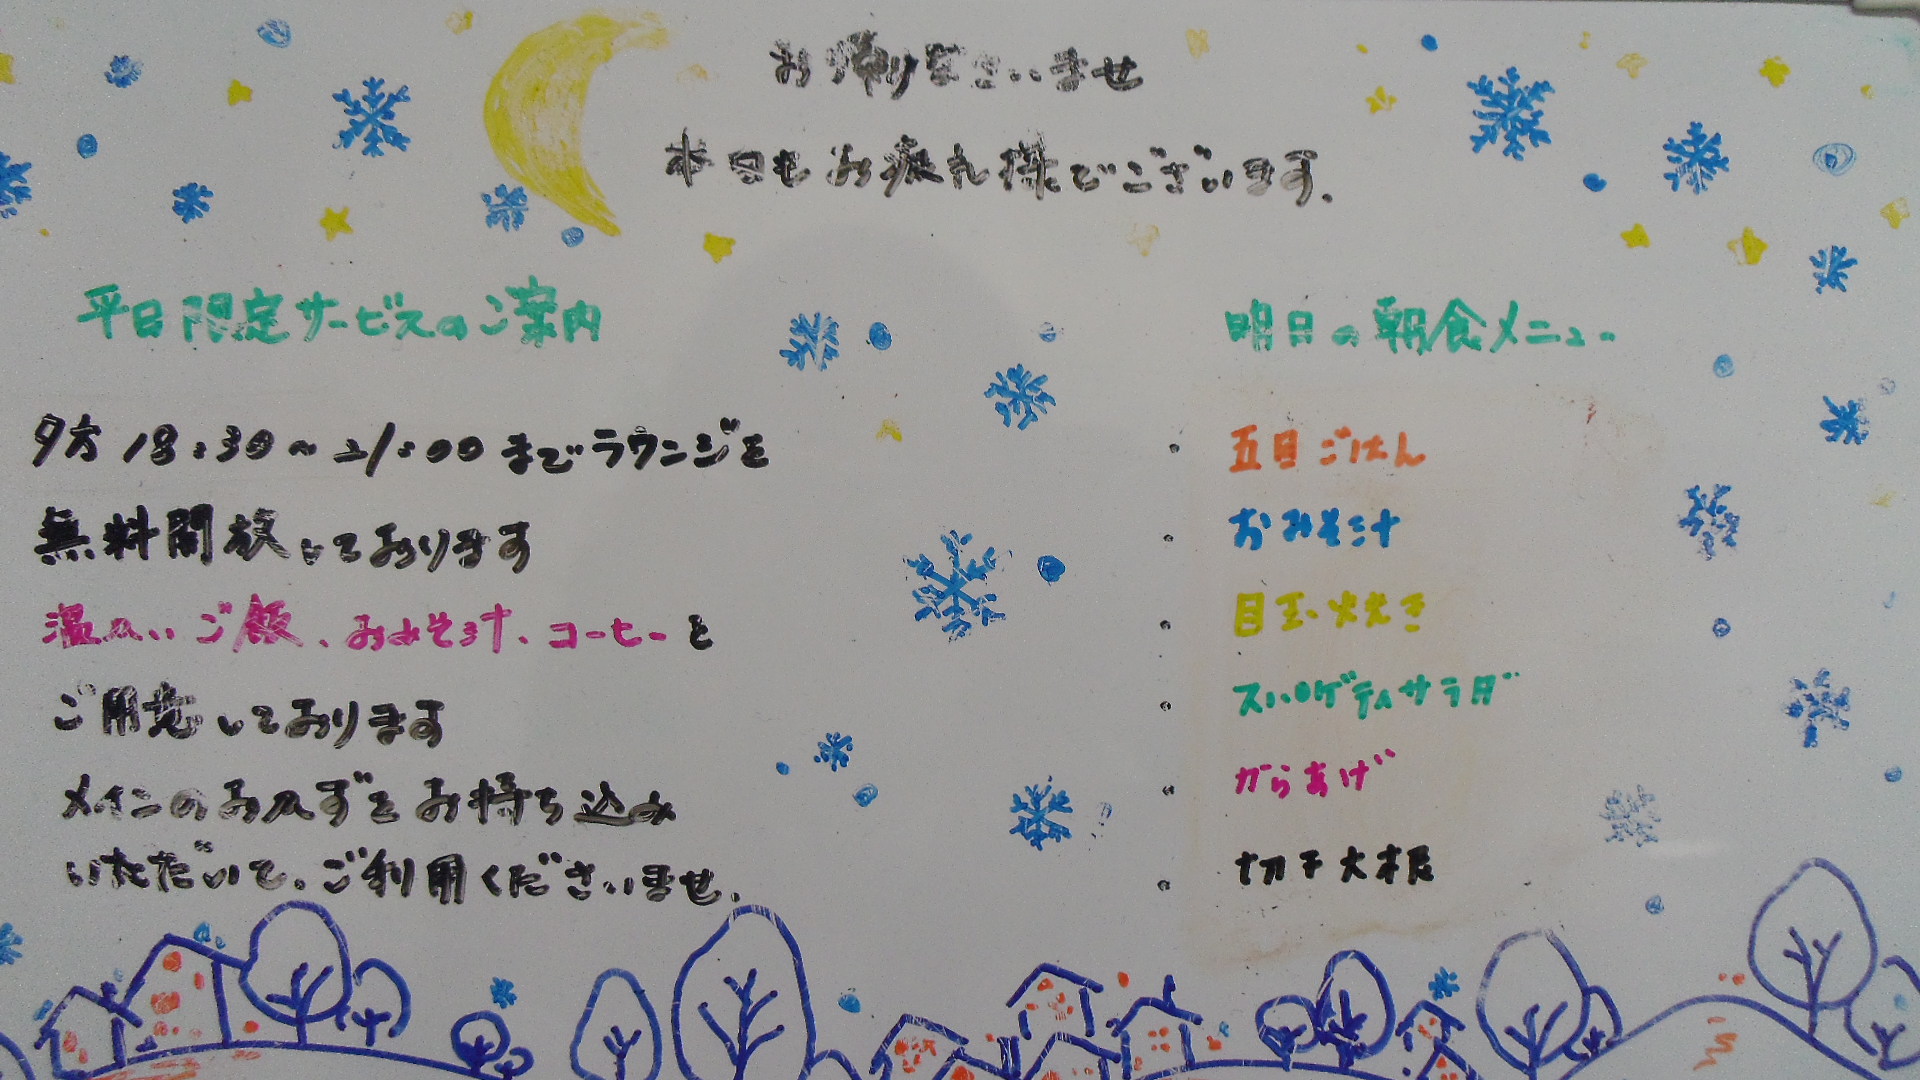 お帰りなさいませ
本日もお疲れ様でございます.
平日限定サービスのご案内
夕方 18:30～21:00 までラウンジを
無料開放しております
温かいご飯、おみそ汁、コーヒーを
ご用意しております
メインのおかずをお持ち込み
いただいて、ご利用くださいませ.
明日の朝食メニュー
・五目ごはん
・おみそ汁
・目玉焼き
・スパゲティサラダ
・からあげ
・切干大根